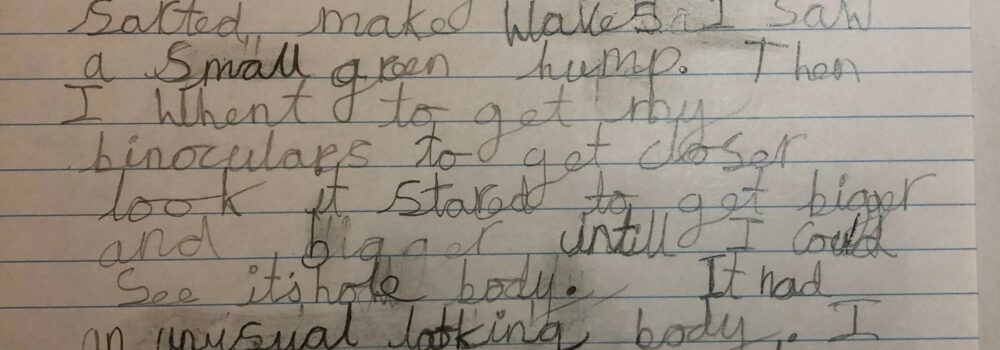 Sarted, make Waves. I Saw
a Small green hump. Then
I Whent to get my
binoculars to get closer
look it Stared to get bigger
and bigger untill I Could
See it's hole body. It had
an unusual looking body. I